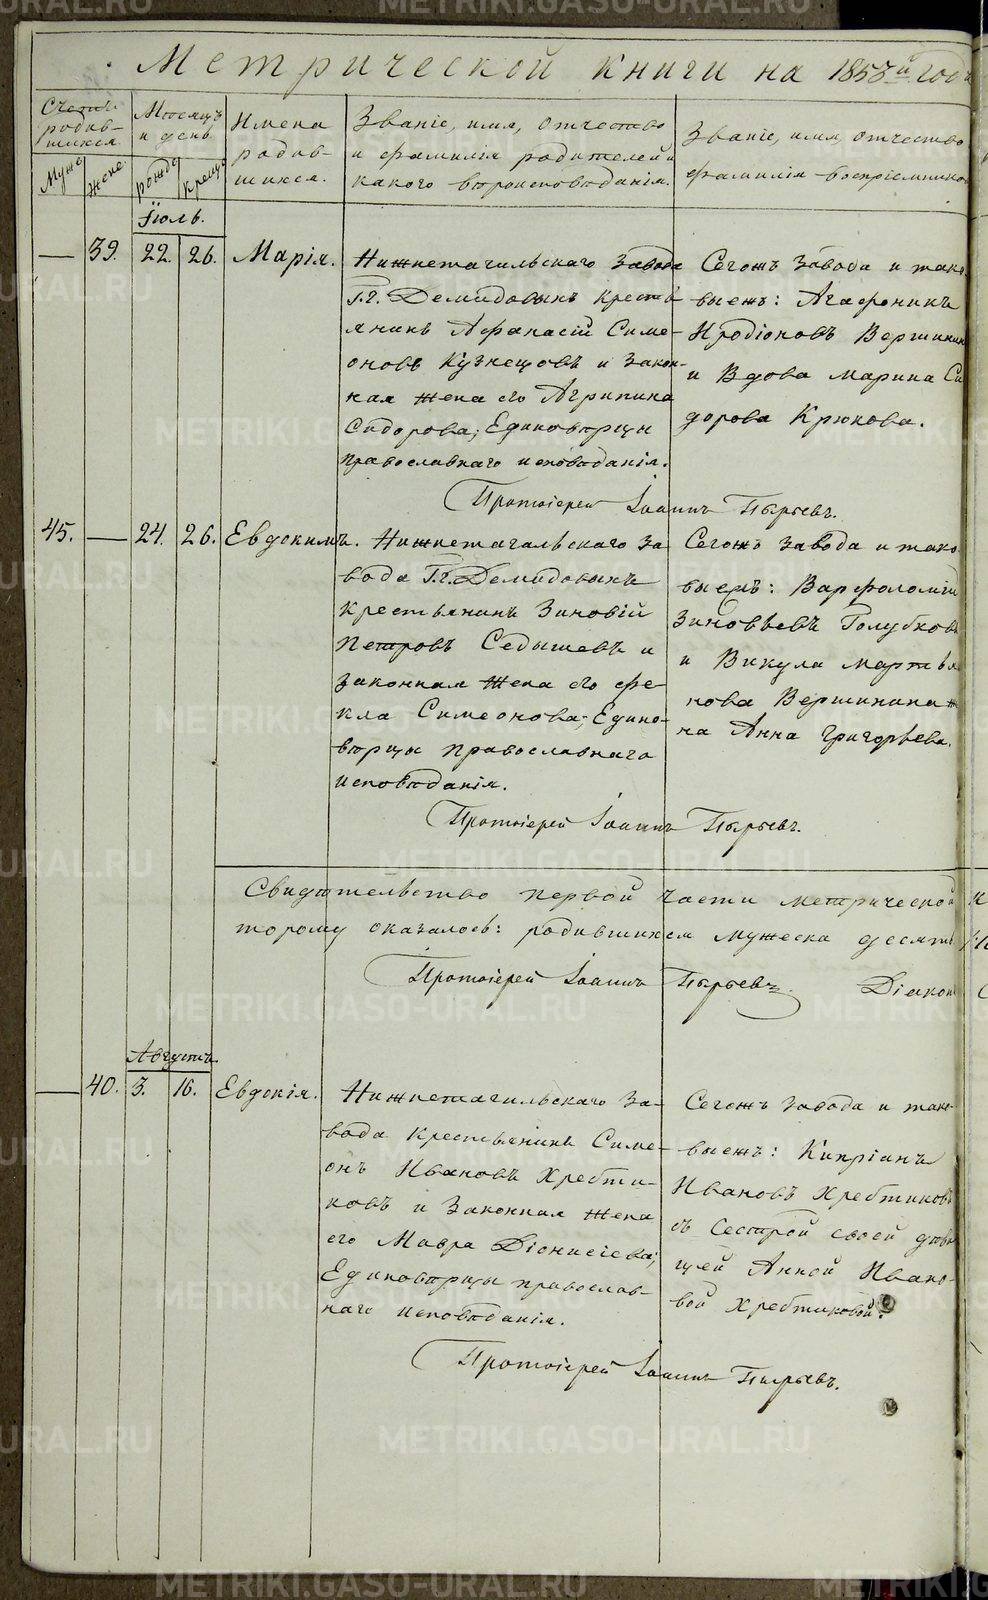 Метрической книги на 1853й годъ
Счетъ родив-
шихся
Муж.
Жен.
Мѣсяцъ
и день
рожд.
крещ.
Имена
родив-
шихся.
Званіе, имя, отчество
и фамилія родителей и
какого вѣроисповѣданія.
Званіе, имя, отчество
фамилія воспріемников
Іюль.
— 39. 22. 26. Марія.
Нижнетагильскаго завода
Г.г. Демидовыхъ кресть-
янинъ Афанасій Симе-
оновъ Кузнецовъ и закон-
ная жена его Агрипина
Сидорова; Единовѣрцы
православнаго исповѣданія.
Сегожъ завода и тако-
выежъ: Агафоникъ
Иродіоновъ Вершинин
и Вдова Марина Си
дорова Крюкова.
Протоіерей Іоаннъ Пырьевъ.
45. — 24. 26. Евдокимъ.
Нижнетагильскаго за
вода Г.г. Демидовыхъ
крестьянинъ Зиновій
Петровъ Седышевъ и
законная жена его Ѳе-
кла Симеонова; Едино-
вѣрцы православнаго
исповѣданія.
Сегожъ завода и тако-
выежъ: Варфоломѣй
Зиновьевъ Голубковъ
и Викула Мартья
нова Вершинина ж
на Анна Григорьева.
Протоіерей Іоаннъ Пырьевъ.
Свидѣтельство первой части метрической
торому оказалось: родившихся мужеска десять
Протоіерей Іоаннъ Пырьевъ. Діакон
Августъ.
— 40. 3. 16. Евдокія.
Нижнетагильскаго за-
вода крестьянинъ Симе-
онъ Ивановъ Хребти-
ковъ и законная жена
его Мавра Діонисіева;
Единовѣрцы православ-
наго исповѣданія.
Сегожъ завода и тако-
выежъ: Кипріанъ
Ивановъ Хребтиковъ
съ сестрой своей дѣви
цей Анной Ивано-
вой Хребтиковой.
Протоіерей Іоаннъ Пырьевъ.
METRIKI.GASO-URAL.RU